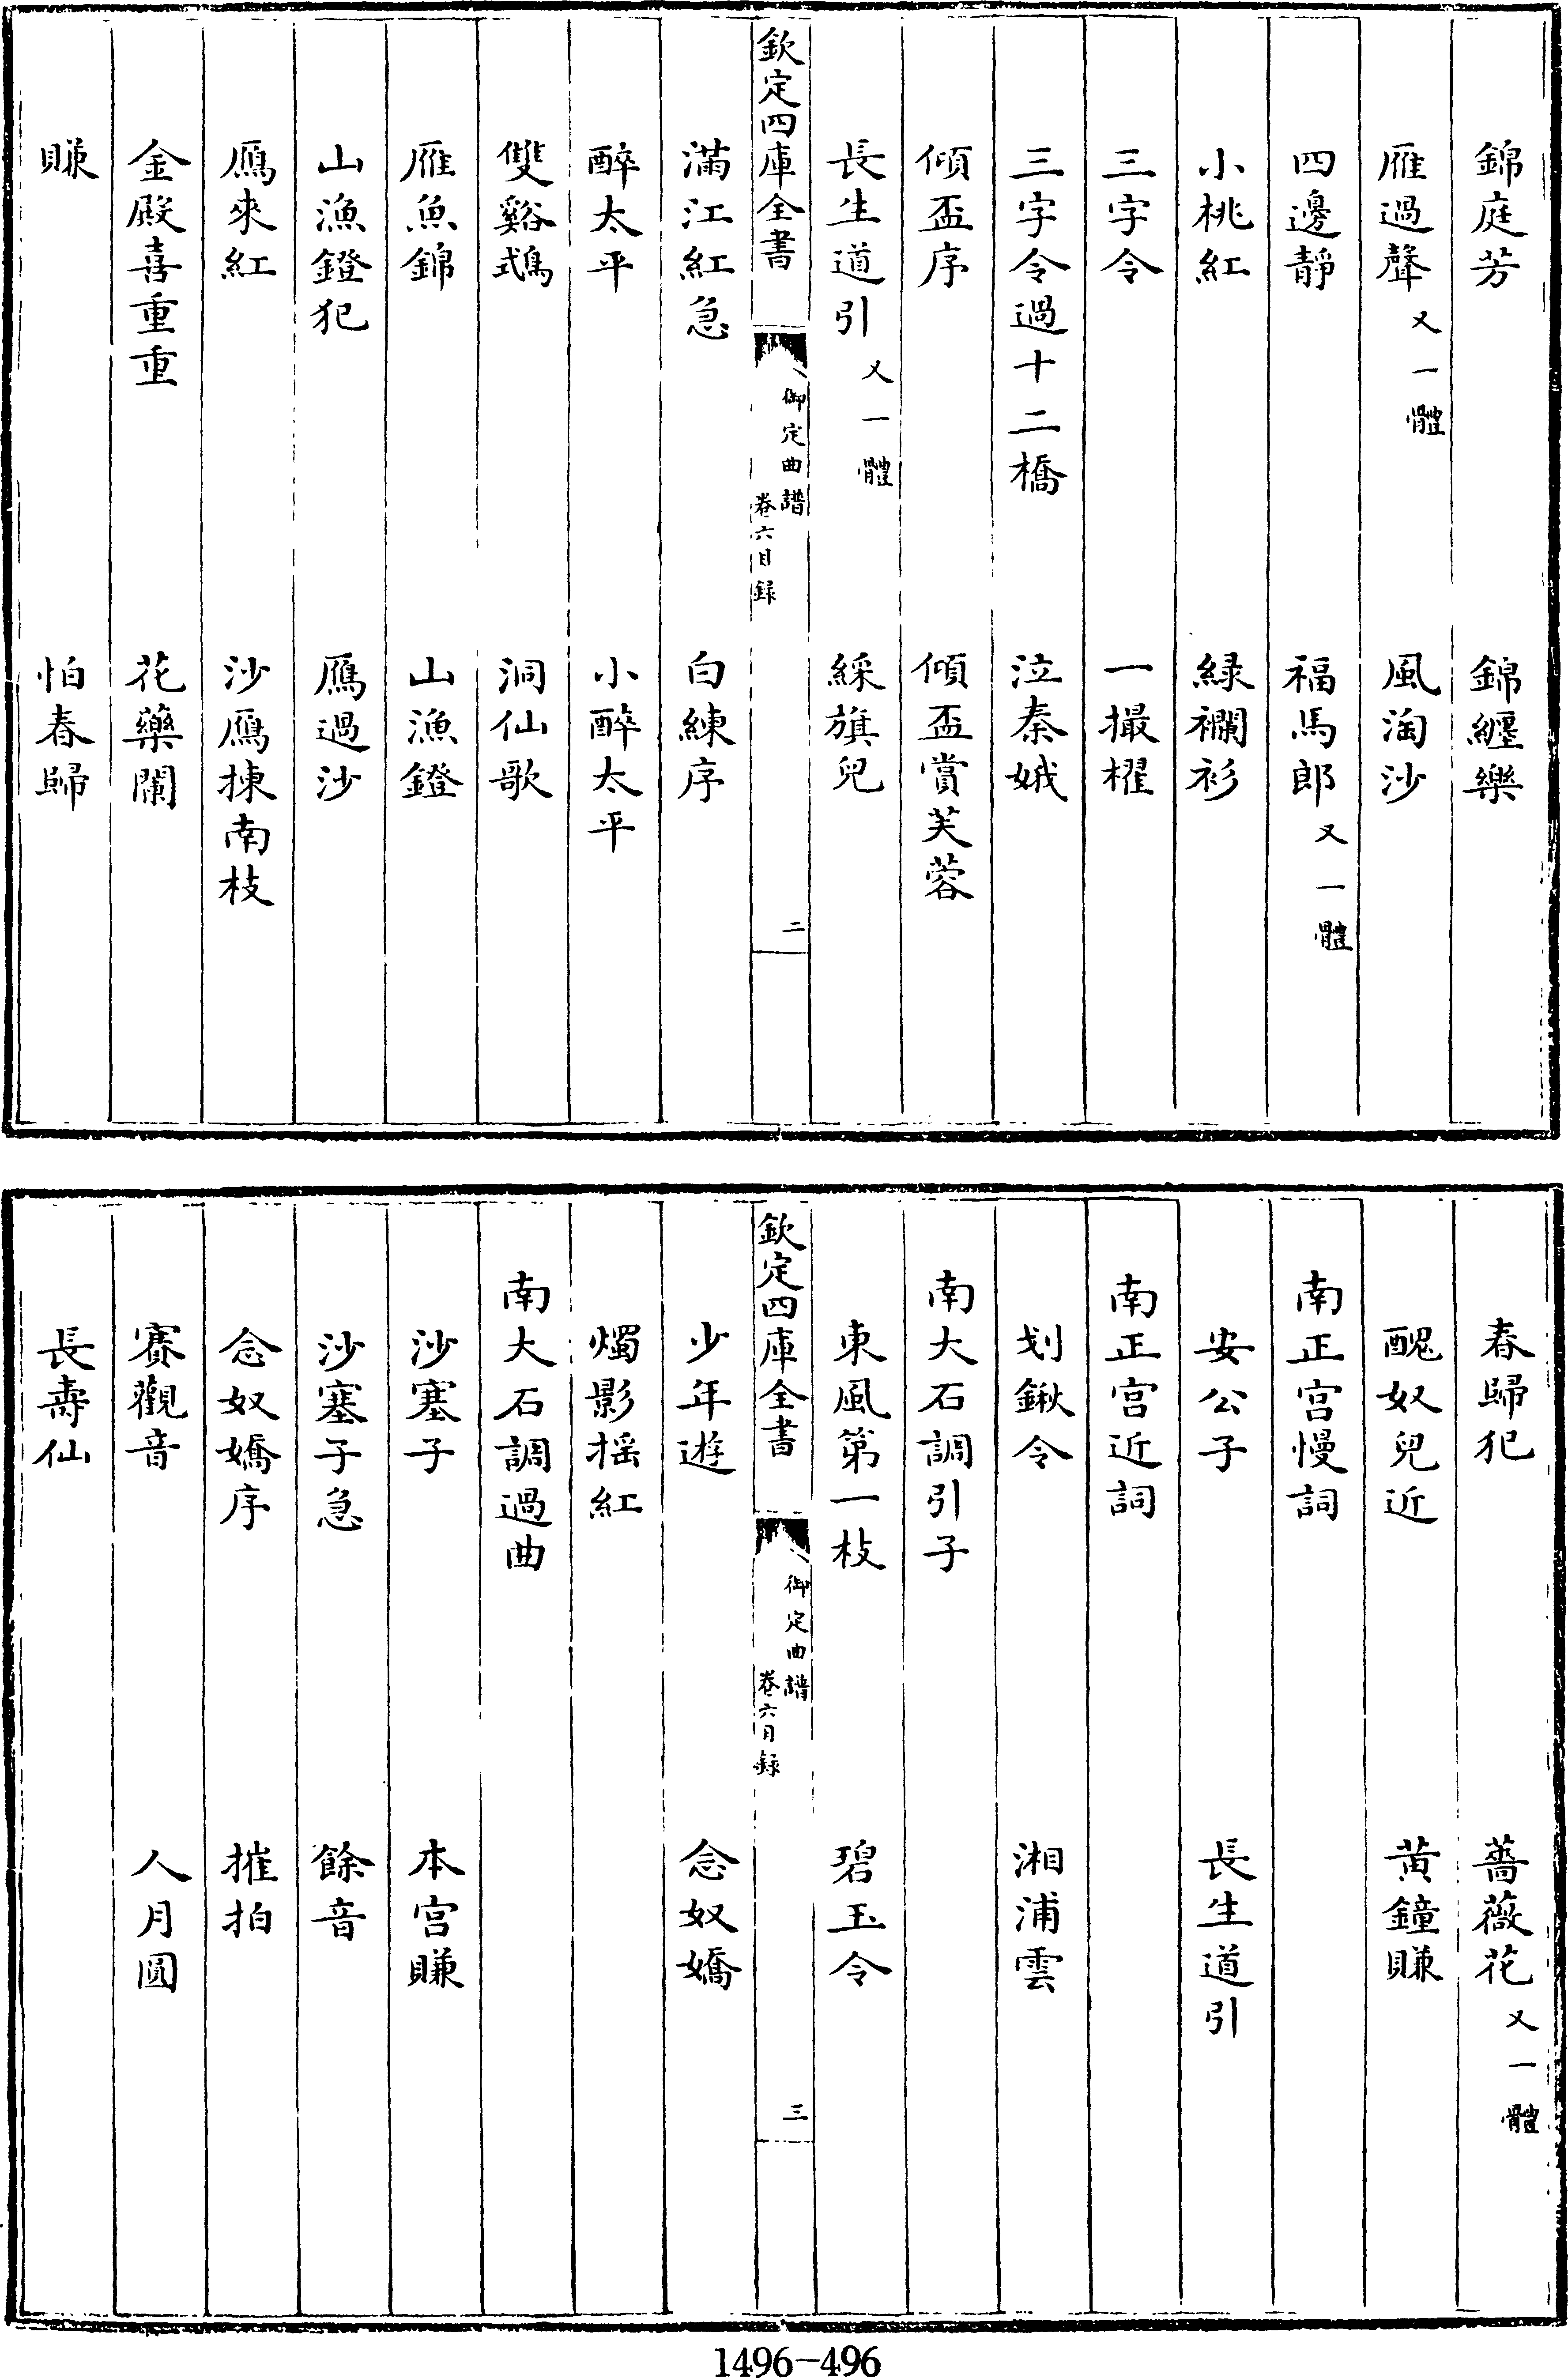 錦庭芳　錦纏樂
雁過聲又一體　風淘沙
四邊靜　福馬郎又一體
小桃紅　緑襴衫
三字令　一撮櫂
三字令過十二橋　泣秦娥
傾盃序　傾盃賞芙蓉
長生道引又一體　綵旗兒
欽定四庫全書　御定曲譜　卷六目録　二
滿江紅急　白練序
醉太平　小醉太平
雙鸂鶒　洞仙歌
雁魚錦　山漁鐙
山漁鐙犯　鴈過沙
鴈來紅　沙鴈揀南枝
金殿喜重重　花藥闌
賺　怕春歸
春歸犯　薔薇花又一體
醜奴兒近　黄鐘賺
南正宫慢詞
安公子　長生道引
南正宫近詞
划鍬令　湘浦雲
南大石調引子
東風第一枝　碧玉令
欽定四庫全書　御定曲譜　卷六目録　三
少年遊　念奴嬌
燭影摇紅
南大石調過曲
沙塞子　本宫賺
沙塞子急　餘音
念奴嬌序　摧拍
賽觀音　人月圓
長壽仙
1496-496